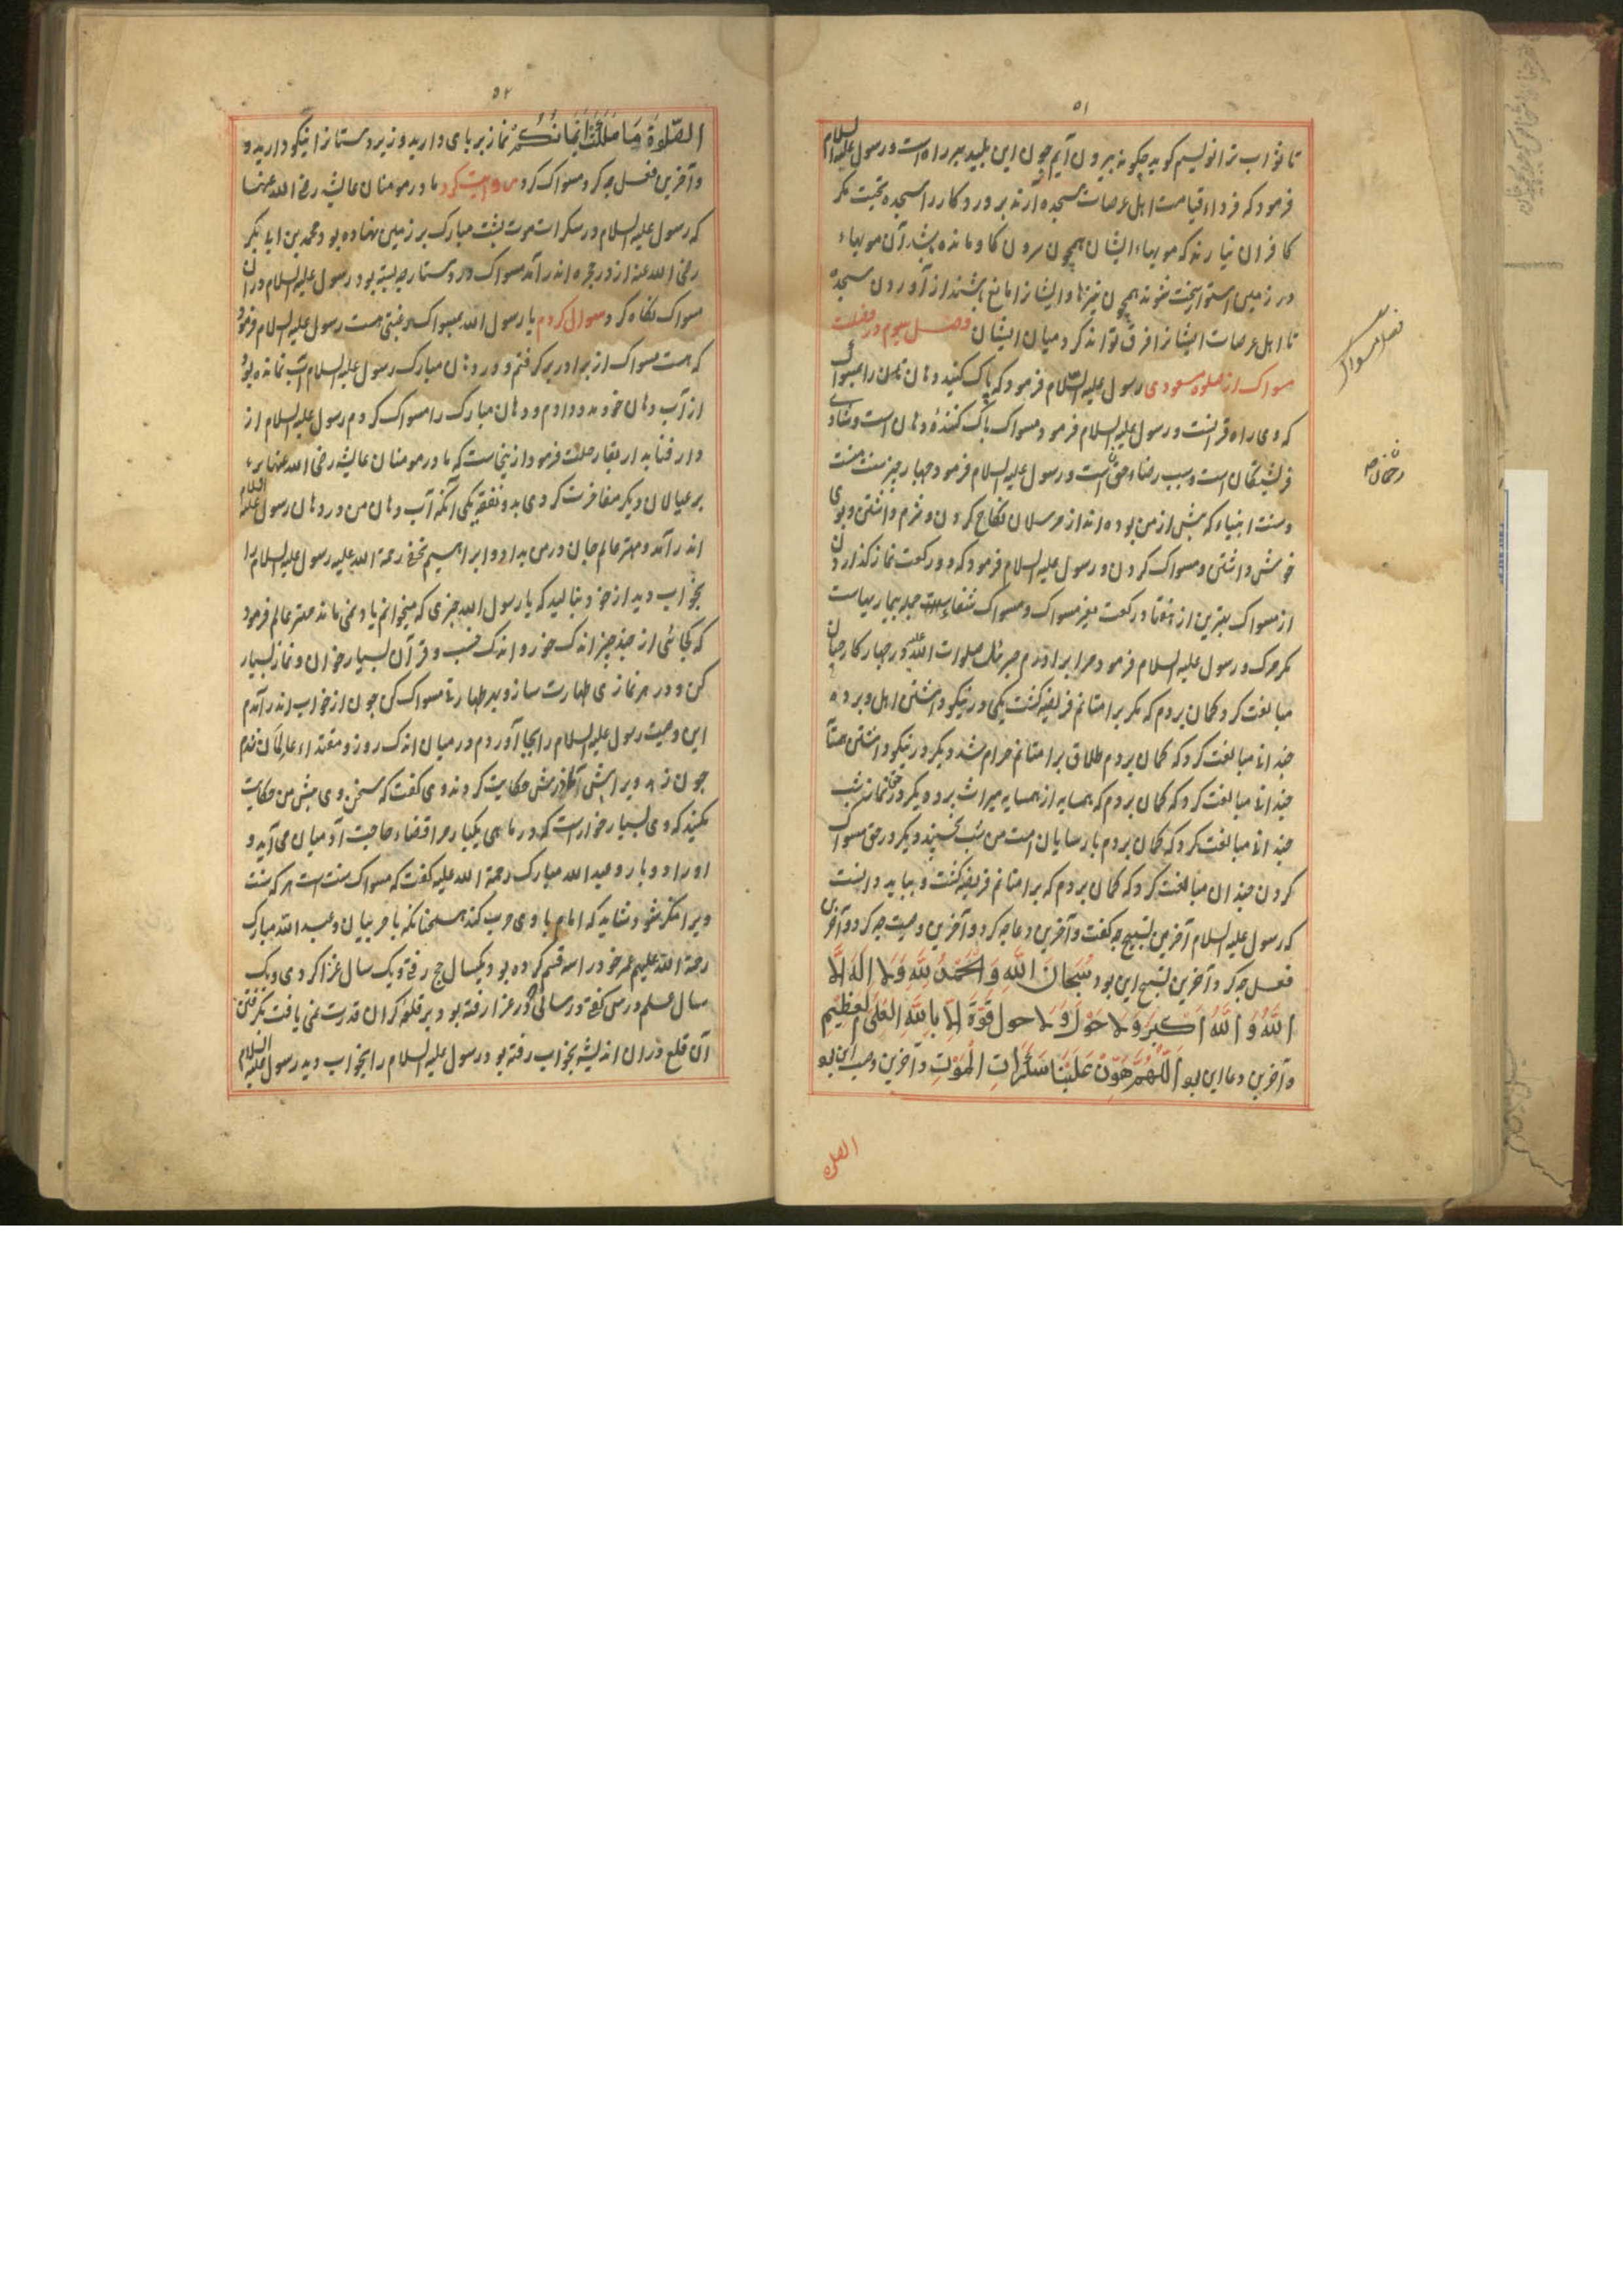 ۵۱
تا ثواب ترا نویسیم کوید چکونه بیرون آیم چون این پلید بر راه است و رسول علیه السلام
فرمود که فرداء قیامت اهل عرصات سجده آرند بروردکار را سجده تحیت مکر
کافران نیارند که مویهاء ایشان همچون سرون کاو مانده باشد آن مویهاء
در زمین استوار سخت شوند همچون نیزها و ایشانرا مانع باشند از آوردن سجده
تا اهل عرصات ایشانرا فرق توانند کرد میان ایشان فصل سیوم در فضیلت
مسواک از صلوة مسعودی رسول علیه السلام فرمود که پاک کنید دهان تان را بمسواک
که وی راه قرآنست و رسول علیه السلام فرمود مسواک پاک کننده دهان است و شادی
فریشتکان است و سبب رضاء حق است و رسول علیه السلام فرمود چهار چیز سنت منست
و سنت انبیاء که پیش از من بوده اند از مرسلان نکاح کردن و شرم داشتن و بوی
خوش داشتن و مسواک کردن و رسول علیه السلام فرمود که دو رکعت نماز کذاردن
از مسواک بهترین از هفتاد رکعت بغیر مسواک و مسواک شفاء است جمله بیماریهاست
مکر مرک و رسول علیه السلام فرمود مرا برادرم جبرئیل صلوات الله علیه در چهار کار چنان
مبالغت کرد کمان بردم که مکر بر امتانم فریضه کشت یکی در نیکو داشتن اهل و برده
چندان مبالغت کرد که کمان بردم طلاق بر امتانم حرام شد و دیکر در نیکو داشتن همسایه
چندان مبالغت کرد که کمان بردم که همسایه از همسایه میراث برد و دیکر در حق نماز شب
چندان مبالغت کرد که کمان بردم پارسایان امت من شب نخسپند و دیکر در حق مسواک
کردن چندان مبالغت کرد که کمان بردم که بر امتانم فریضه کشت و بباید دانست
که رسول علیه السلام آخرین تسبیح چه کفت و آخرین دعا چه کرد و آخرین وصیت چه کرد و آخرین
فعل چه کرد و آخرین تسبیح این بود سُبحَانَ اللهِ وَ الحَمدُ لِلّهِ وَلَا اِلَهَ اِلَّا
اللهُ وَ اللهُ اَکبَر وَ لَا حَولَ وَ لا حول قُوَّةَ اِلَّا بِاللهِ العَلیِّ العَظِیم
و آخرین دعا این بود اَللّهُمَّ هَوِّن عَلَینَا سَکَرَاتِ المَوتِ و آخرین وصیت این بود
الصلوة
فضل مسواک
۵۲
الصَّلوةَ وَ مَا مَلَکَت اَیمَانُکُم نماز بر پای دارید و زیردستانرا نیکو دارید و
و آخرین فعل چه کرد مسواک کرد روایت کرد مادر مومنان عایشه رضی الله عنها
که رسول علیه السلام در سکرات موت پشت مبارک بر زمین نهاده بود محمد بن ابابکر
رضی الله عنه از در حجره اندر آمد مسواک در دستارچه بسته بود رسول علیه السلام در ان
مسواک نکاه کرد سوال کردم یا رسول الله بمسواک رغبتی هست رسول علیه السلام فرمود
که هست مسواک از برادر برکرفتم و در دهن مبارک رسول علیه السلام آب نمانده بود
از آب دهان خود مدد دادم و دهان مبارک را مسواک کردم رسول علیه السلام از
دار فنا بدار بقا رحلت فرمود ازینجاست که مادر مومنان عایشه رضی الله عنها بر
بر عیالان دیکر مفاخرت کردی بدو یکی آنکه آب دهان من در دهان رسول علیه السلام
اندر آمد و مهتر عالم جان در من بداد و ابراهیم نخعی رحمة الله علیه رسول علیه السلام را
بخواب دید از خود بنالید که یا رسول الله چیزی که میخوانم یاد نمی ماند مهتر عالم فرمود
از چند چیز اندک خور و اندک خسب و قرآن بسیار خوان و نماز بسیار
کن و در هر نمازی طهارت ساز و بهر طهارتی مسواک کن چون از خواب اندر آمدم
این وصیت رسول علیه السلام را بجا آوردم در میان اندک روز و مقتداء عالمان شدم
چون ویرا پیش حکایت کردند وی کفت که سخن وی پیش من حکایت
مکنید که وی بسیار خوار است که در ماهی یکبار مر او قضاء حاجت آدمیان می آید و
او را دو بار و عبد الله مبارک رحمة الله علیه کفت که مسواک سنت است هر که سنت
ویرا منکر شود شاید که امام با وی حرب کند همچنانکه با حربیان و عبد الله مبارک
رحمة الله علیهم عمر خود را سه قسم کرده بود یکسال حج رفتی و یک سال غزا کردی و یک
سال علم درس کفتی و در سالی در غزا رفته بود بر قلعه کران قدرت نمی یافت بکرفتن
آن قلع در ان اندیشه بخواب رفته بود رسول علیه السلام را بخواب دید رسول علیه السلام